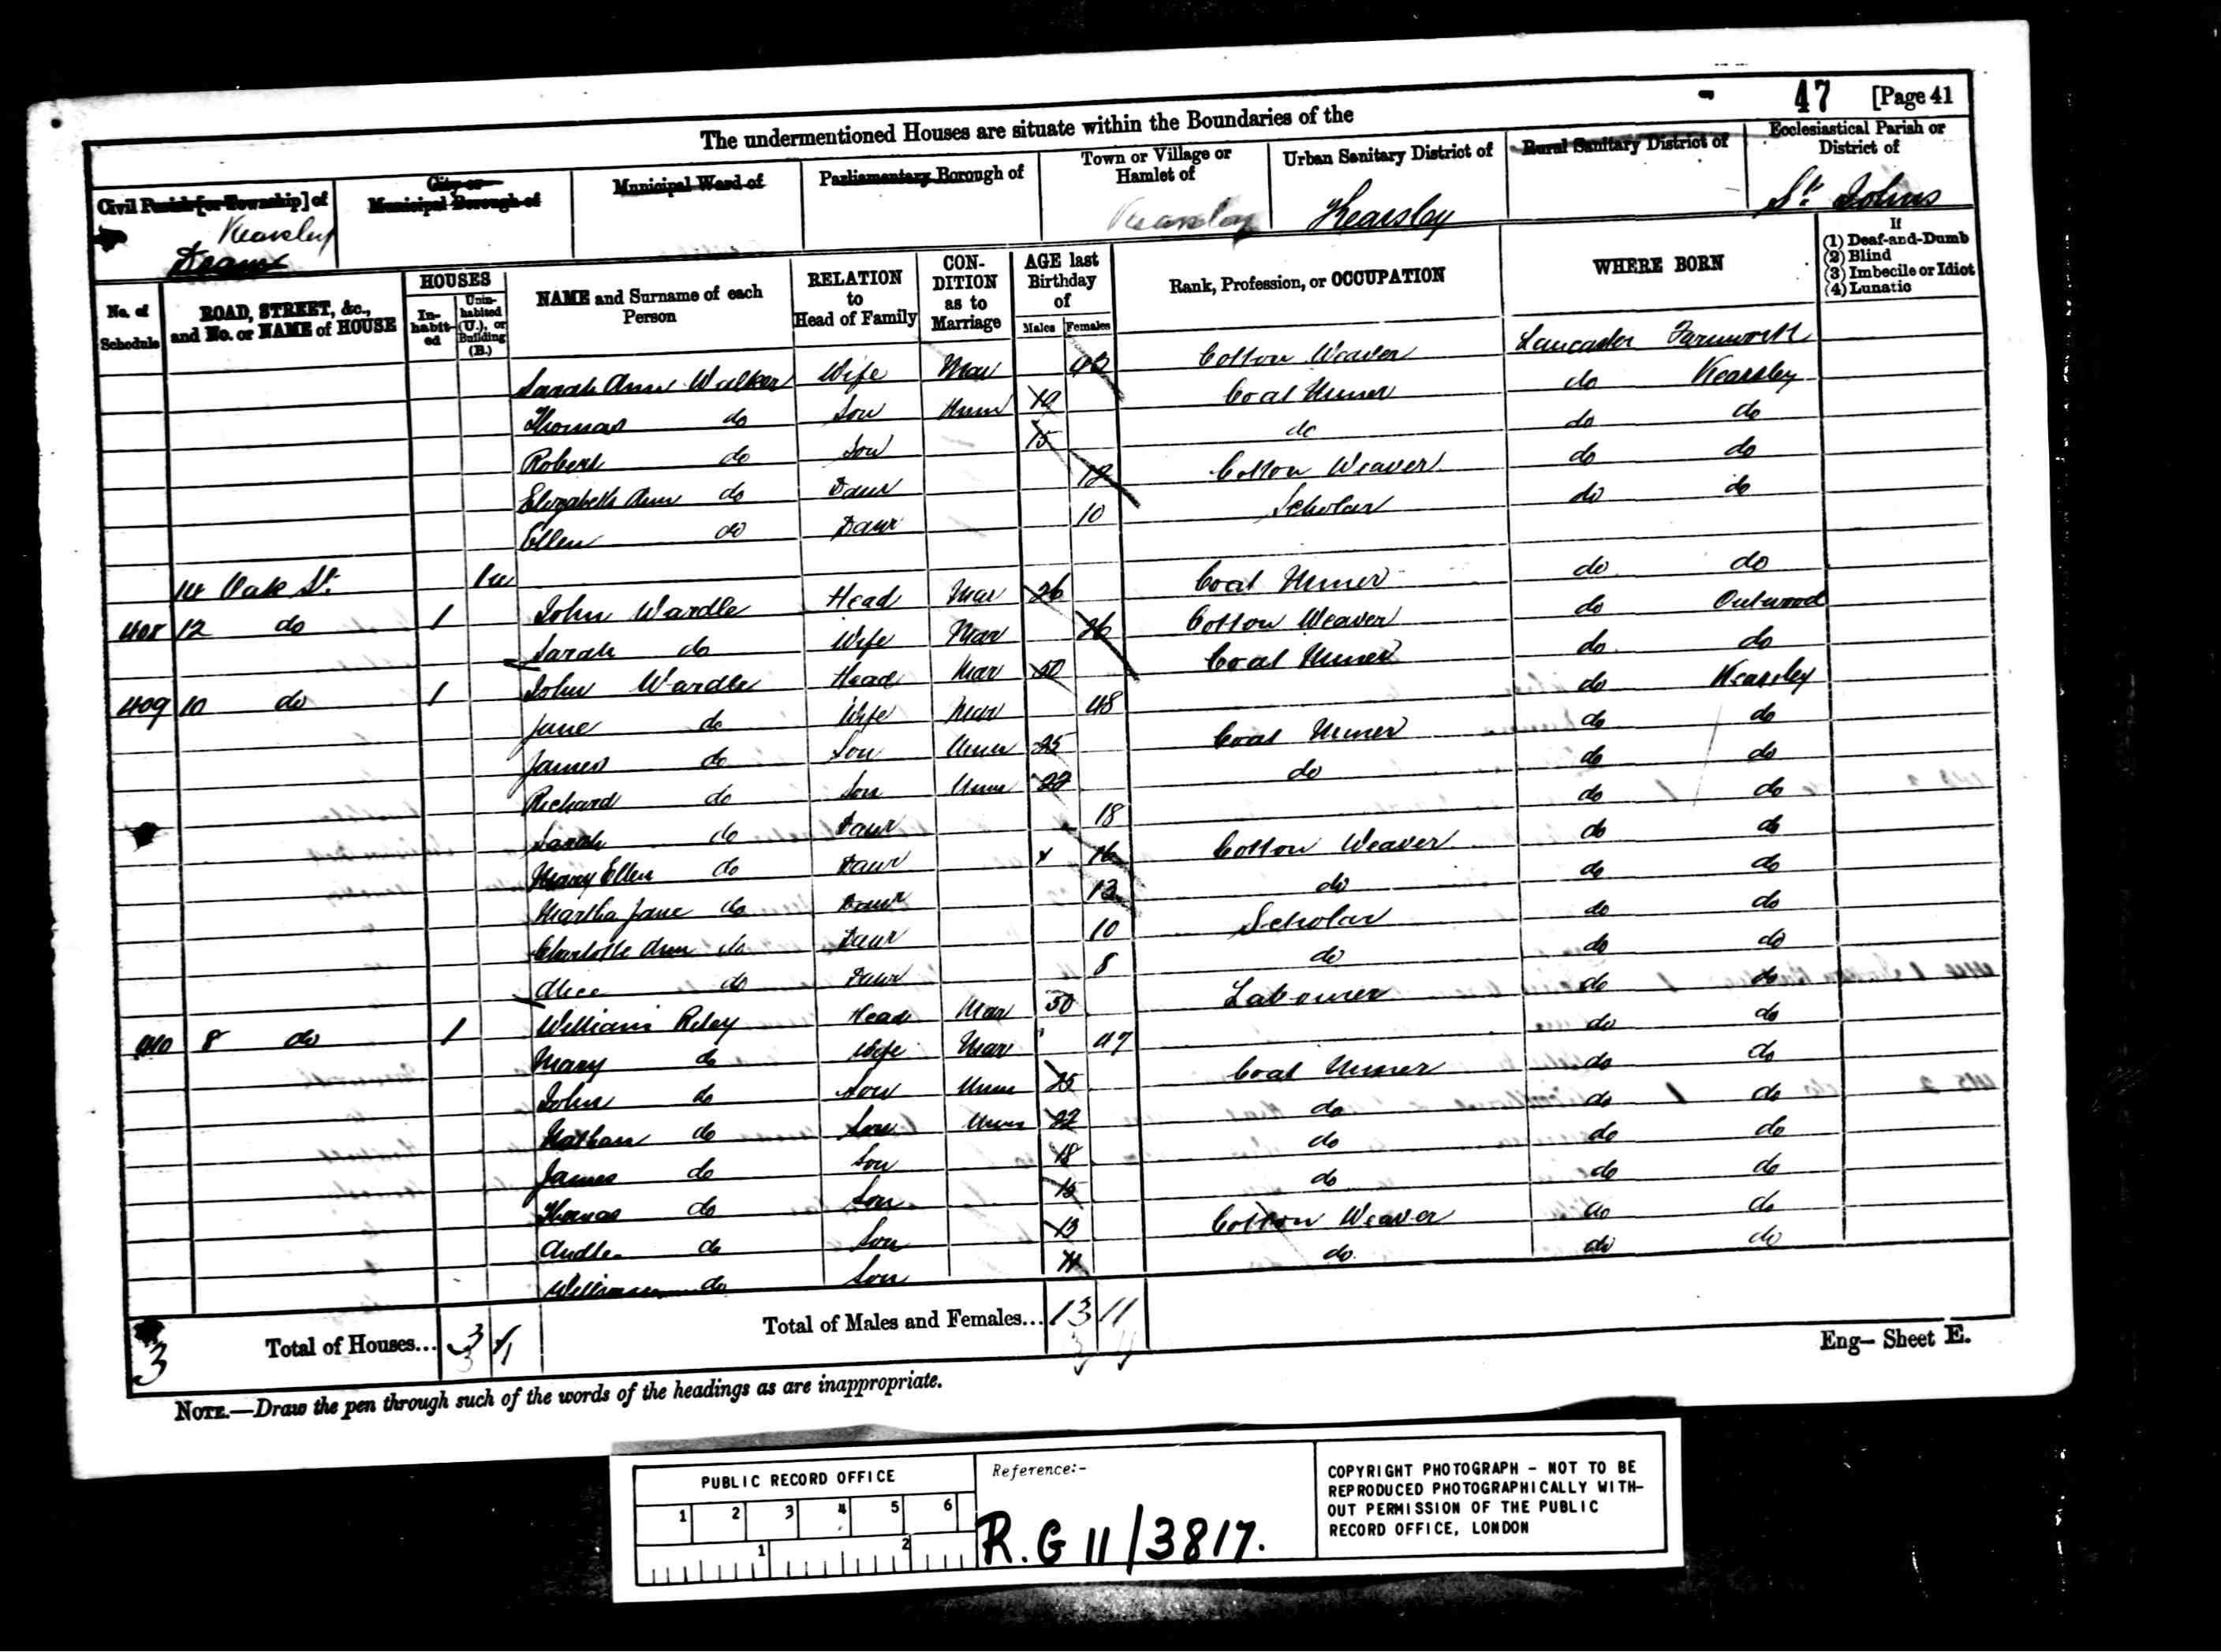 47 [Page 41
The undermentioned Houses are situate within the Boundaries of the
Civil Parish [or Township] of
Kearsley
Deane
City or Municipal Borough of
Municipal Ward of
Parliamentary Borough of
Town or Village or Hamlet of
Kearsley
Urban Sanitary District of
Kearsley
Rural Sanitary District of
Ecclesiastical Parish or District of
St. Johns
No. of Schedule
ROAD, STREET, &c., and No. or NAME of HOUSE
HOUSES
In-habit-ed
Unin-habited (U.), or Building (B.)
NAME and Surname of each Person
RELATION to Head of Family
CON-DITION as to Marriage
AGE last Birthday of
Males Females
Rank, Profession, or OCCUPATION
WHERE BORN
If
(1) Deaf-and-Dumb
(2) Blind
(3) Imbecile or Idiot
(4) Lunatic
Sarah Ann Walker Wife Mar Cotton Weaver Lancaster Farnworth
Thomas do Son Unm 19 Coal Miner do Kearsley
Robert do Son 15 do do do
Elizabeth Ann do Daur 12 Cotton Weaver do do
Ellen do Daur 10 Scholar do do
14 Oak St. 1u
408 12 do 1 John Wardle Head Mar 26 Coal Miner do do
Sarah do Wife Mar 26 Cotton Weaver do Outwood
409 10 do 1 John Wardle Head Mar 50 Coal Miner do do
Jane do Wife Mar 48 do Kearsley
James do Son Unm 25 Coal Miner do do
Richard do Son Unm 22 do do do
Sarah do Daur 18 do do
Mary Ellen do Daur 16 Cotton Weaver do do
Martha Jane do Daur 13 do do do
Charlotte Ann do Daur 10 Scholar do do
Alice do Daur 8 do do do
410 8 do 1 William Riley Head Mar 50 Labourer do do
Mary do Wife Mar 47 do do
John do Son Unm 25 Coal Miner do do
Nathan do Son Unm 22 do do do
James do Son 18 do do do
Thomas do Son 15 do do do
do Son 13 Cotton Weaver do do
William do Son 11 do do do
3 Total of Houses... 3 1
Total of Males and Females... 13 11
Eng— Sheet E.
NOTE.—Draw the pen through such of the words of the headings as are inappropriate.
PUBLIC RECORD OFFICE
1 2 3 4 5 6
1 2
Reference:-
R.G 11/3817.
COPYRIGHT PHOTOGRAPH - NOT TO BE
REPRODUCED PHOTOGRAPHICALLY WITH-
OUT PERMISSION OF THE PUBLIC
RECORD OFFICE, LONDON